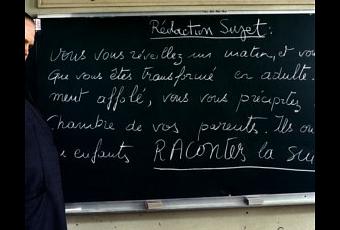 Rédaction Sujet:
Vous vous réveillez un matin, et vou
que vous êtes transformé en adulte.
ment affolé, vous vous précipitez
chambre de vos parents. Ils on
enfants RACONTER la sui